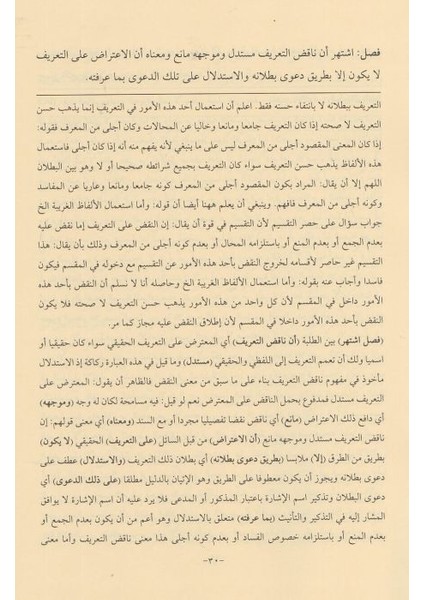 فصل: اشتهر أن ناقض التعريف مستدل وموجهه مانع ومعناه أن الاعتراض على التعريف
لا يكون إلا بطريق دعوى بطلانه والاستدلال على تلك الدعوى بما عرفته.
التعريف ببطلانه لا بانتفاء حسنه فقط. اعلم أن استعمال أحد هذه الأمور في التعريف إنما يذهب حسن
التعريف لا صحته إذا كان التعريف جامعا ومانعا وخاليا عن المحالات وكان أجلى من المعرف فقوله:
إذا كان المعنى المقصود أجلى من المعرف ليس على ما ينبغي لأنه يفهم منه أنه إذا كان أجلى فاستعمال
هذه الألفاظ يذهب حسن التعريف سواء كان التعريف بجميع شرائطه صحيحا أو لا وهو بين البطلان
اللهم إلا أن يقال: المراد بكون المقصود أجلى من المعرف كونه جامعا ومانعا وعاريا عن المفاسد
وكونه أجلى من المعرف فافهم. وينبغي أن يعلم ههنا أيضا أن قوله: وأما استعمال الألفاظ الغريبة الخ
جواب سؤال على حصر التقسيم لأن التقسيم في قوة أن يقال: إن النقض على التعريف إما نقض عليه
بعدم الجمع أو بعدم المنع أو باستلزامه المحال أو بعدم كونه أجلى من المعرف وذلك بأن يقال: هذا
التقسيم غير حاصر لأقسامه لخروج النقض بأحد هذه الأمور عن التقسيم مع دخوله في المقسم فيكون
فاسدا وأجاب عنه بقوله: وأما استعمال الألفاظ الغريبة الخ وحاصله أنا لا نسلم أن النقض بأحد هذه
الأمور داخل في المقسم لأن كل واحد من هذه الأمور يذهب حسن التعريف لا صحته فلا يكون
النقض بأحد هذه الأمور داخلا في المقسم لأن إطلاق النقض عليه مجاز كما مر.
(فصل اشتهر) بين الطلبة (أن ناقض التعريف) أي المعترض على التعريف سواء كان حقيقيا أو
اسميا ولك أن تعمم التعريف إلى اللفظي والحقيقي (مستدل) وما قيل في هذه العبارة ركاكة إذ الاستدلال
مأخوذ في مفهوم ناقض التعريف بناء على ما سبق من معنى النقض فالظاهر أن يقول: المعترض على
التعريف مستدل فمدفوع بحمل الناقض على المعترض نعم لو قيل: فيه مسامحة لكان له وجه (وموجهه)
أي دافع ذلك الاعتراض (مانع) أي ناقض نقضا تفصيليا مجردا أو مع السند (ومعناه) أي معنى قولهم: إن
ناقض التعريف مستدل وموجهه مانع (أن الاعتراض) من قبل السائل (على التعريف) الحقيقي (لا يكون)
بطريق من الطرق (إلا) ملابسا (بطريق دعوى بطلانه) أي بطلان ذلك التعريف (والاستدلال) عطف على
دعوى بطلانه ويجوز أن يكون معطوفا على الطريق وهو الإتيان بالدليل مطلقا (على تلك الدعوى) أي
دعوى البطلان وتذكير اسم الإشارة باعتبار المذكور أو المدعى فلا يرد عليه أن اسم الإشارة لا يوافق
المشار إليه في التذكير والتأنيث (بما عرفته) متعلق بالاستدلال وهو أعم من أن يكون بعدم الجمع أو
بعدم المنع أو باستلزامه خصوص الفساد أو بعدم كونه أجلى هذا معنى ناقض التعريف وأما معنى
-٣٠-